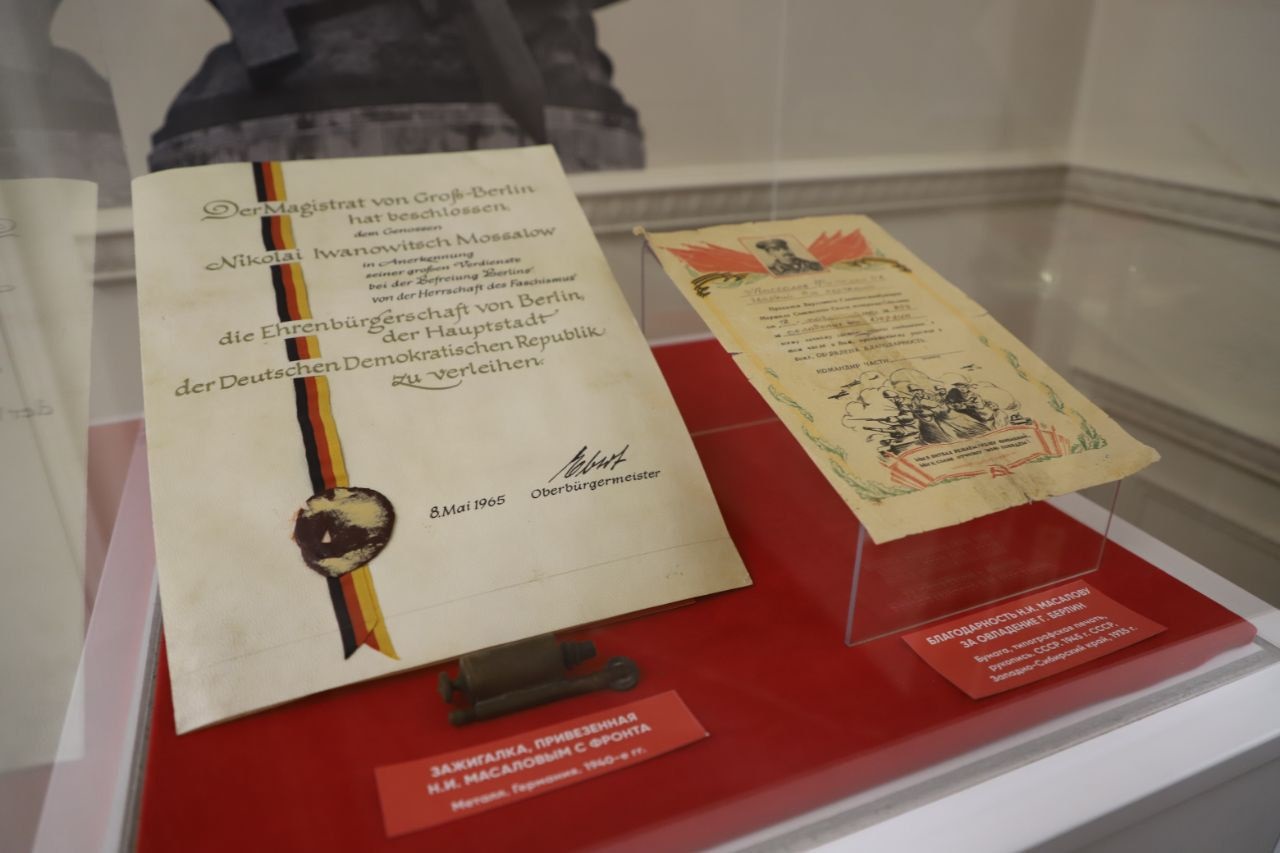 Der Magistrat von Groß-Berlin
hat beschlossen,
dem Genossen
Nikolai Iwanowitsch Mossalow
in Anerkennung
seiner großen Verdienste
bei der Befreiung Berlins
von der Herrschaft des Faschismus
die Ehrenbürgerschaft von Berlin,
der Hauptstadt
der Deutschen Demokratischen Republik
zu verleihen.
Ebert
8. Mai 1965 Oberbürgermeister
Приказом Верховного Главнокомандующего
Маршала Советского Союза
ОБ'ЯВЛЕНА БЛАГОДАРНОСТЬ
КОМАНДИР ЧАСТИ
ЗАЖИГАЛКА, ПРИВЕЗЕННАЯ
Н.И. МАСАЛОВЫМ С ФРОНТА
Металл. Германия. 1940-е гг.
БЛАГОДАРНОСТЬ Н.И. МАСАЛОВУ
ЗА ОВЛАДЕНИЕ Г. БЕРЛИН
Бумага, типографская печать,
рукопись. СССР. 1945 г. СССР,
Западно-Сибирский край, 1935 г.